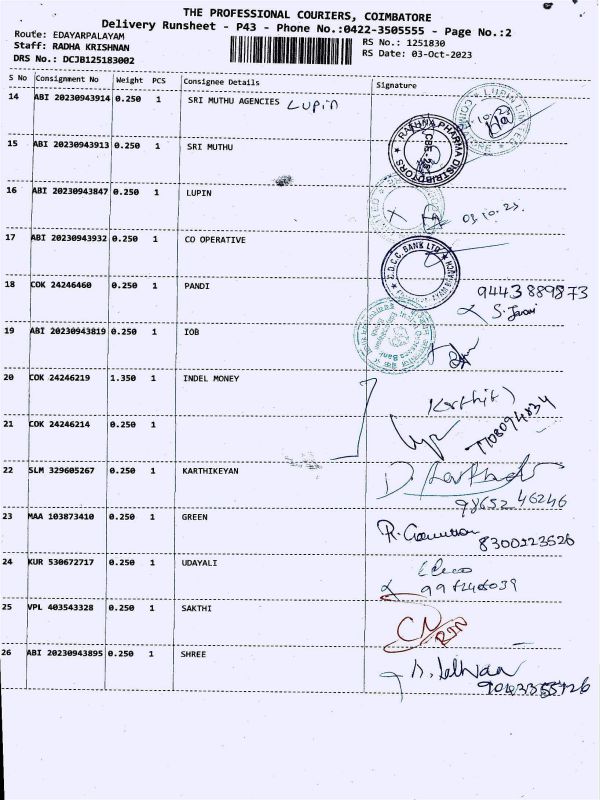 THE PROFESSIONAL COURIERS, COIMBATORE
Delivery Runsheet - P43 - Phone No.:0422-3505555 - Page No.:2
Route: EDAYARPALAYAM
Staff: RADHA KRISHNAN RS No.: 1251830
DRS No.: DCJB125183002 RS Date: 03-Oct-2023
S No Consignment No Weight PCS Consignee Details Signature
14 ABI 20230943914 0.250 1 SRI MUTHU AGENCIES Lupin
15 ABI 20230943913 0.250 1 SRI MUTHU
PHARMA DISTRIBUTORS
16 ABI 20230943847 0.250 1 LUPIN 03.10.23
17 ABI 20230943932 0.250 1 CO OPERATIVE
C.D.C.C. BANK LTD
18 COK 24246460 0.250 1 PANDI 9443889873
19 ABI 20230943819 0.250 1 IOB
20 COK 24246219 1.350 1 INDEL MONEY
21 COK 24246214 0.250 1 7708094834
22 SLM 329605267 0.250 1 KARTHIKEYAN
98652 46246
23 MAA 103873410 0.250 1 GREEN 8300223526
24 KUR 530672717 0.250 1 UDAYALI
25 VPL 403543328 0.250 1 SAKTHI
26 ABI 20230943895 0.250 1 SHREE